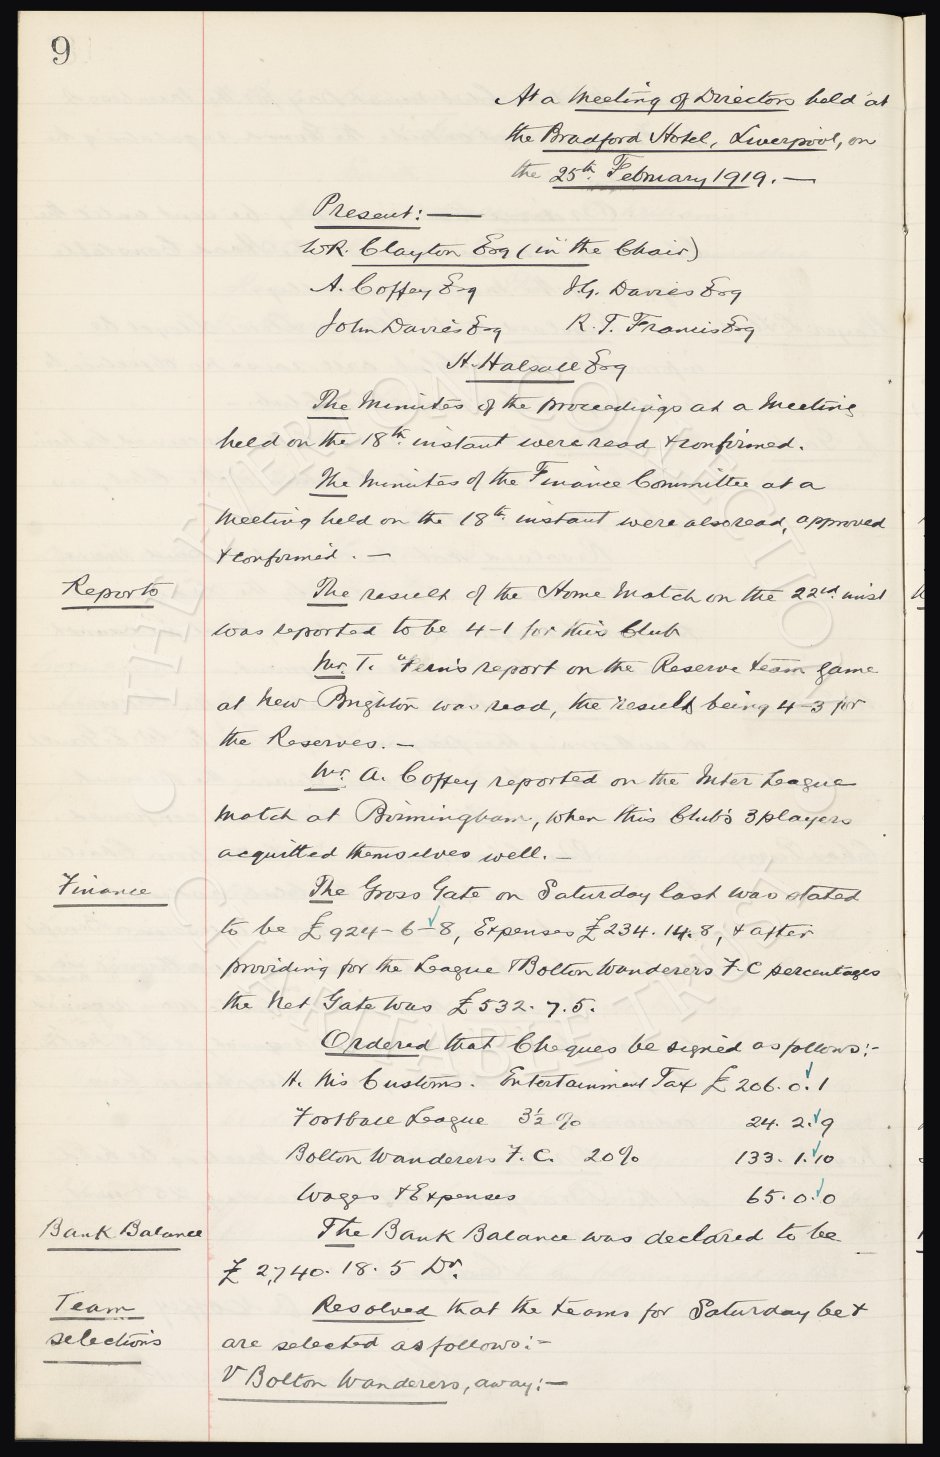 9
At a Meeting of Directors held at
the Bradford Hotel, Liverpool, on
the 25th. February 1919. —
Present: —
W.R. Clayton Esq (in the Chair)
A. Coffey Esq J.G. Davies Esq
John Davies Esq R.T. Francis Esq
H. Halsall Esq
The Minutes of the proceedings at a Meeting
held on the 18th. instant were read & confirmed.
The Minutes of the Finance Committee at a
Meeting held on the 18th. instant were also read, approved
& confirmed. —
Reports The result of the Home Match on the 22nd. inst
was reported to be 4-1 for this Club
Mr T. Fern's report on the Reserve team game
at New Brighton was read, the result being 4-3 for
the Reserves. —
Mr. A. Coffey reported on the Inter League
Match at Birmingham, when this Club's 3 players
acquitted themselves well. —
Finance The Gross Gate on Saturday last was stated
to be £924-6-8, Expenses £234.14.8, & after
providing for the League & Bolton Wanderers F.C percentages
the Net Gate was £532.7.5.
Ordered that Cheques be signed as follows:-
H. M's Customs. Entertainment Tax £206.0.1
Football League 3½ % 24.2.9
Bolton Wanderers F.C. 20% 133.1.10
Wages & Expenses 65.0.0
Bank Balance The Bank Balance was declared to be
£2,740.18.5 Dr.
Team Resolved that the teams for Saturday be &
selections are selected as follows:-
V Bolton Wanderers, away:—